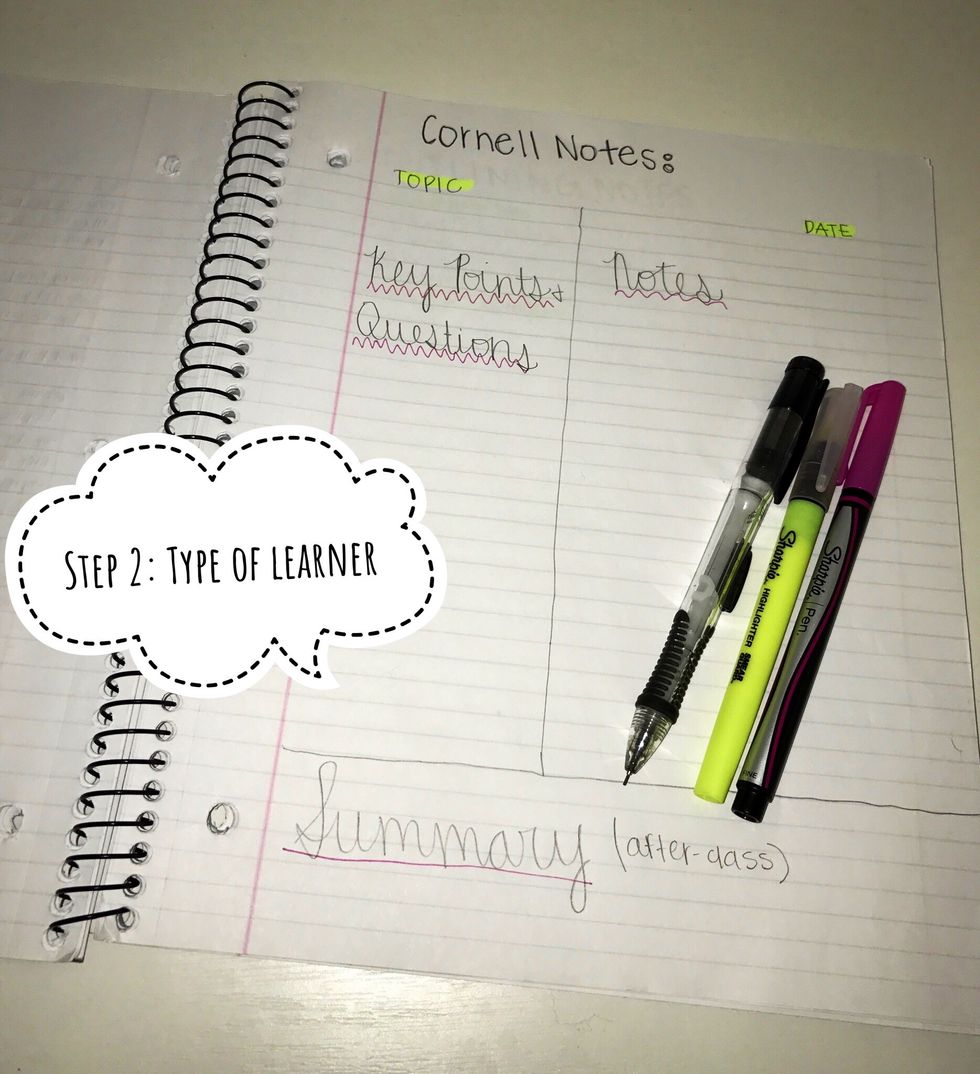 Cornell Notes:
TOPIC
DATE
Key Points +
Questions
Notes
STEP 2: TYPE OF LEARNER
Sharpie. HIGHLIGHTER SMEAR GUARD
Sharpie. Pen.
FINE
Summary (after-class)